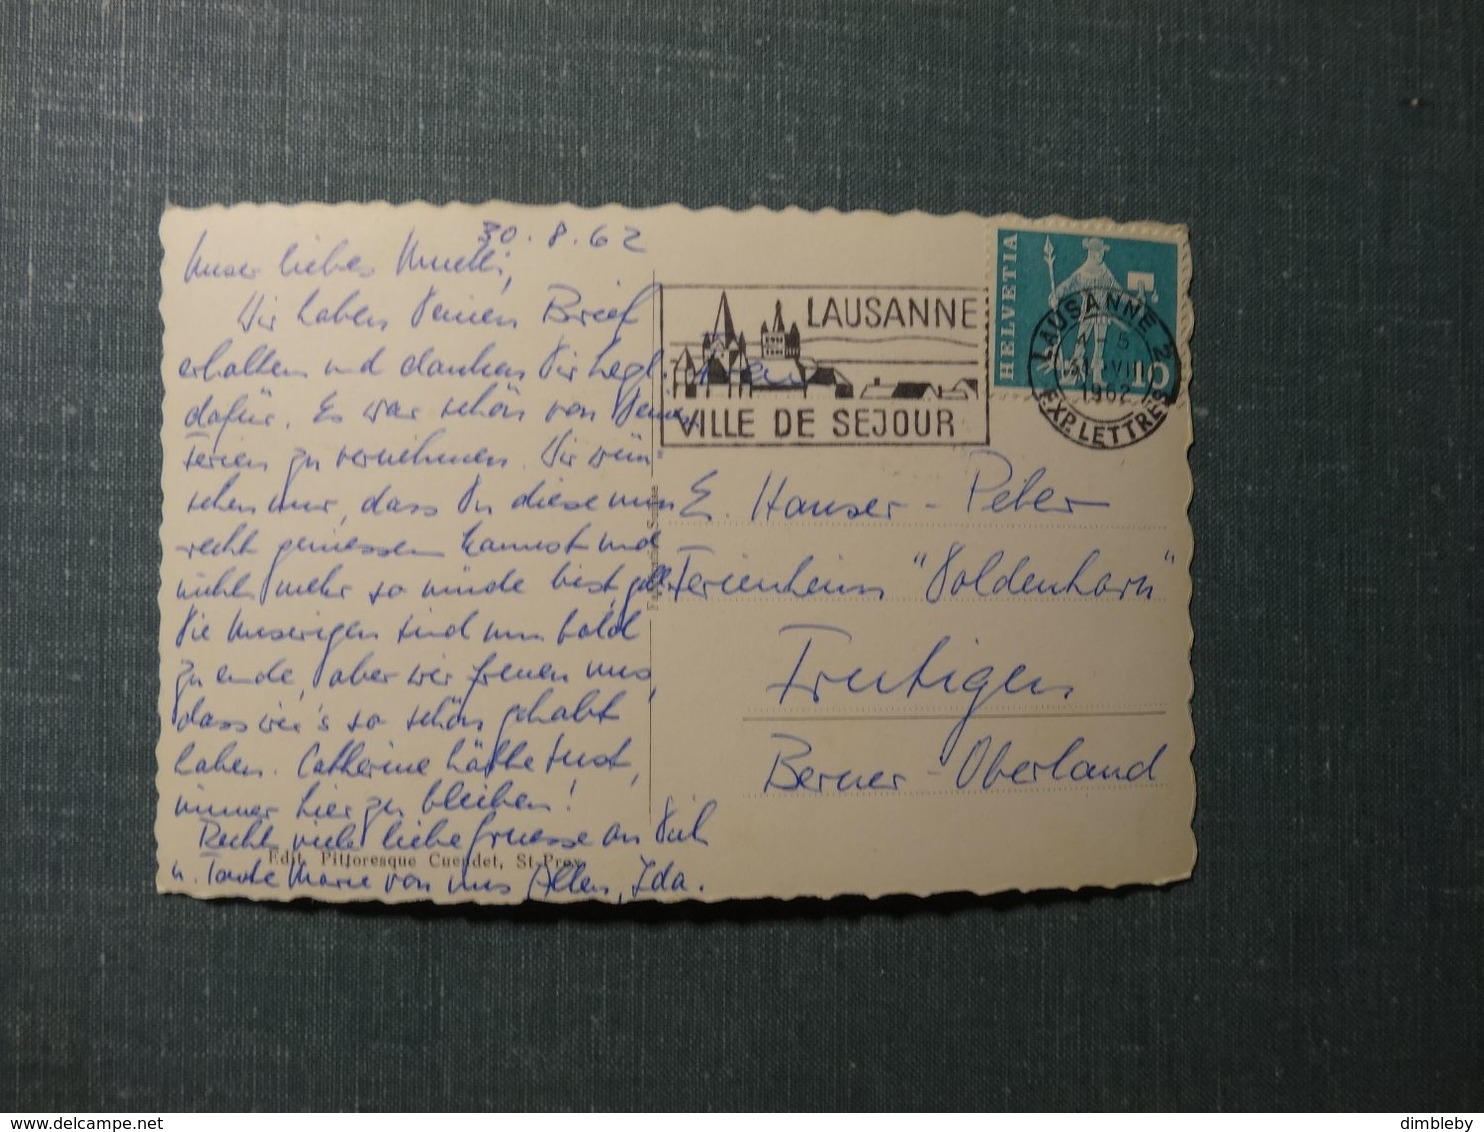 30.8.62
Unser liebes Muetti,
Wir haben Deinen Brief
erhalten und danken Dir herzl.
dafür. Es war schön von Deinen
Ferien zu vernehmen. Wir wün
schen nur, dass Du diese nun
recht geniessen kannst und
nicht mehr so müde bist, gell.
Die Unserigen sind nun bald
zu ende, aber wir freuen uns,
dass wir's so schön gehabt
haben. Catherine hätte Lust,
immer hier zu bleiben!
Recht viele liebe Gruesse an Dich
u. Tante Marie von uns Allen, Ida.
Edit. Pittoresque Cuendet, St-Prex
LAUSANNE
VILLE DE SEJOUR
HELVETIA
10
LAUSANNE 2
1962
EXP. LETTRES
Frau
E. Hauser-Peter
Ferienheim "Doldenhorn"
Frutigen
Berner-Oberland
www.delcampe.net
dimbleby